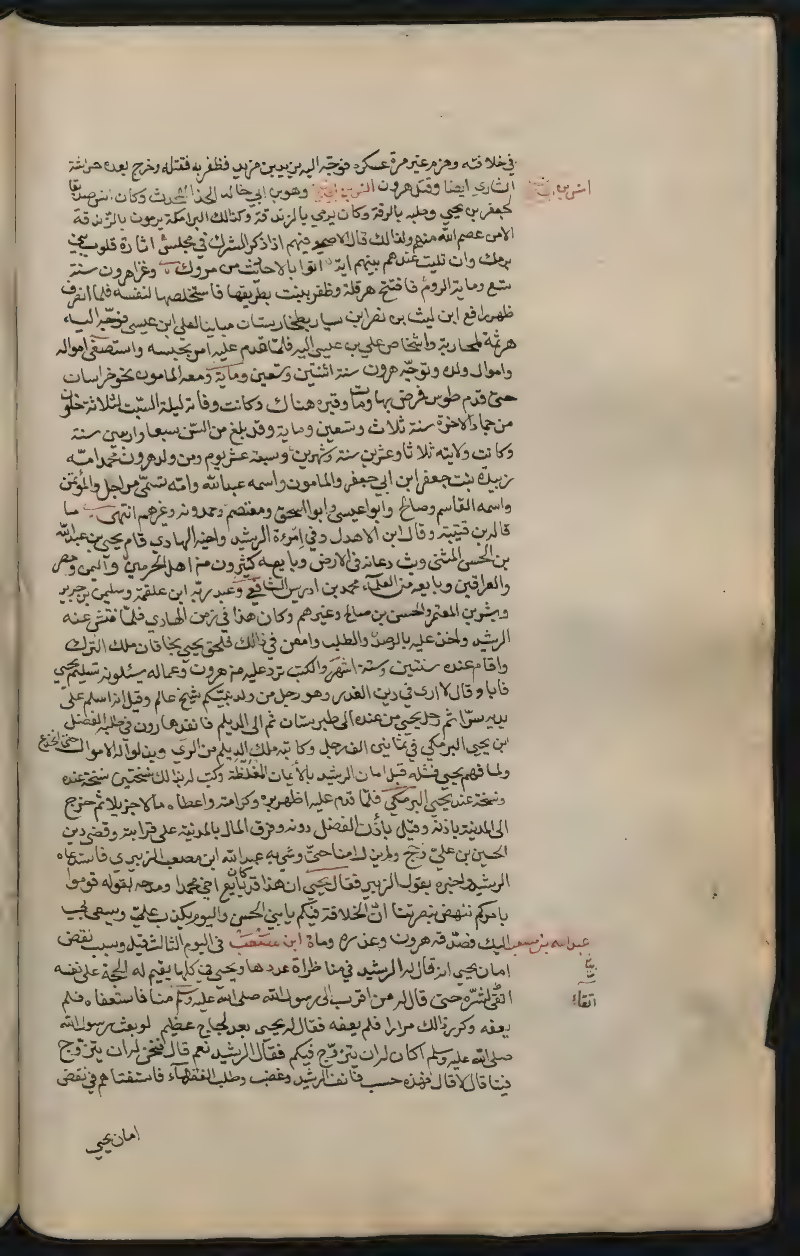 في خلافته وهزم غير مرة عسكره فوجه اليه يزيد بن مزيد فظفر به فقتله وخرج بعده خراشة
الشاري ايضا وقتل هرون انس بن ابي وهو بن ابي خالد المحدث وكان انس صديقا
لجعفر بن يحيى وصلبه بالرقة وكان يرمي بالزندقة وكذلك البرامكة يرمون بالزندقة
الا من عصم الله منهم ولذلك قال الاصمعي فيهم اذا ذكر الشرك في مجلس انارة قلوب بني
برمك وان تليت عندهم بينهم اية اتوا بالاحاديث من مروك وغزا هرون سنة
تسع وماية الروم فافتتح هرقلة وظفر ببنت بطريقها فاستخلصها لنفسه فلما انصرف
ظهر رافع ابن ليث بن نصر ابن سيار بطخارستان مباينا لعلي ابن عيسى فوجه اليه
هرثمة لمحاربته واشخاص علي بن عيسى اليه فلما قدم عليه امر بحبسه واستصفى امواله
واموال ولده وتوجه هرون سنة اثنتين وتسعين وماية ومعه المامون نحو خراسان
حتى قدم طوس فمرض بها ومات وقبره هناك وكانت وفاته ليلة السبت لثلاث خلون
من جماد الاخرة سنة ثلاث وتسعين وماية وقد بلغ من السن سبعا واربعين سنة
وكانت ولايته ثلاثا وعشرين سنة وشهرين وسبعة عشر يوم ومن ولد هرون محمد امه
زبيدة بنت جعفر ابن ابي جعفر والمامون واسمه عبد الله وامه تسمى مراجل والمؤتمن
واسمه القاسم وصالح وابو عيسى وابو اسحق ومعتصم وحمدونه وغيرهم انتهى ما
قاله بن قتيبة وقال ابن الاهدل وفي امرءة الرشيد واخيه الهادي قام يحيى بن عبد الله
بن الحسن المثنى وبث دعاته في الارض وبايعه كثيرون من اهل الحرمين واليمن ومصر
والعراقين وبايعه من العلماء محمد بن ادريس الشافعي وعبد ربه ابن علقمة وسليمن بن جرير
وبشر بن المعتمر والحسن بن صالح وغيرهم وكان هذا في زمن الهادي فلما فتش عنه
الرشيد والحن عليه بالرصد والطلب وامعن في ذالك فلحق يحيى بخاقان ملك الترك
واقام عنده سنتين وستة اشهر والكتب ترد عليه من هرون وعماله يسئلونه تسليم يحيى
فابا وقال لا ارى في دين الغدر وهو رجل من ولد نبيكم شيخ عالم وقيل انه اسلم على
يديه سرا ثم رحل يحيى من عنده الى طبرستان ثم الى الديلم فانفذ هارون في طلبه الفضل
ابن يحيى البرمكي في ثمانين الف رجل وكاتبه ملك الديلم من الري وبذل له الاموال حتى انخدع
ولما فهم يحيى فشله قبل امان الرشيد بالايمان المغلظة وكتب له بذالك نسختين نسخة عنده
ونسخة عند يحيى البرمكي فلما قدم عليه اظهر بره وكرامته واعطاه مالا جزيلا ثم خرج
الى المدينة باذنه وقيل باذن الفضل دونه وفرق المال بالمدينة على قرابته وقضى دين
الحسين بن علي وحج ولم يزل امنا حتى وشى به عبد الله ابن مصعب الزبيري فاستدعاه
الرشيد واخبره بقول الزبير فقال يحيى ان هذا قد كان بايع اخي محمدا ومدحه بقوله قوموا
بامركم ننهض بنصرتنا ان الخلافة فيكم يا بني الحسن واليوم يكذب علي ويسعى بي
اليك فصدقه هرون وعذره ومات ابن مصعب في اليوم الثالث قيل وسبب نقض
امان يحيى انه قال له الرشيد في مناظراة عددها ويحيى في كلها يقيم له الحجة على نفسه
اتقى لشره حتى قال له من اقرب الى رسول الله صلى الله عليه وسلم منا فاستعفاه فلم
يعفه وكرر ذالك مرارا فلم يعفه فقال له يحيى بعد لجاج عظيم لو بعث رسول الله
صلى الله عليه وسلم اكان له ان يتزوج فيكم فقال الرشيد نعم قال فنحن له ان يتزوج
فينا قال لا قال فهذه حسب فانف الرشيد وغضب وطلب الفقهاء فاستفتاهم في نقض
امان يحيى
انس بن ابي
عبد الله بن مصعب
اتقاء